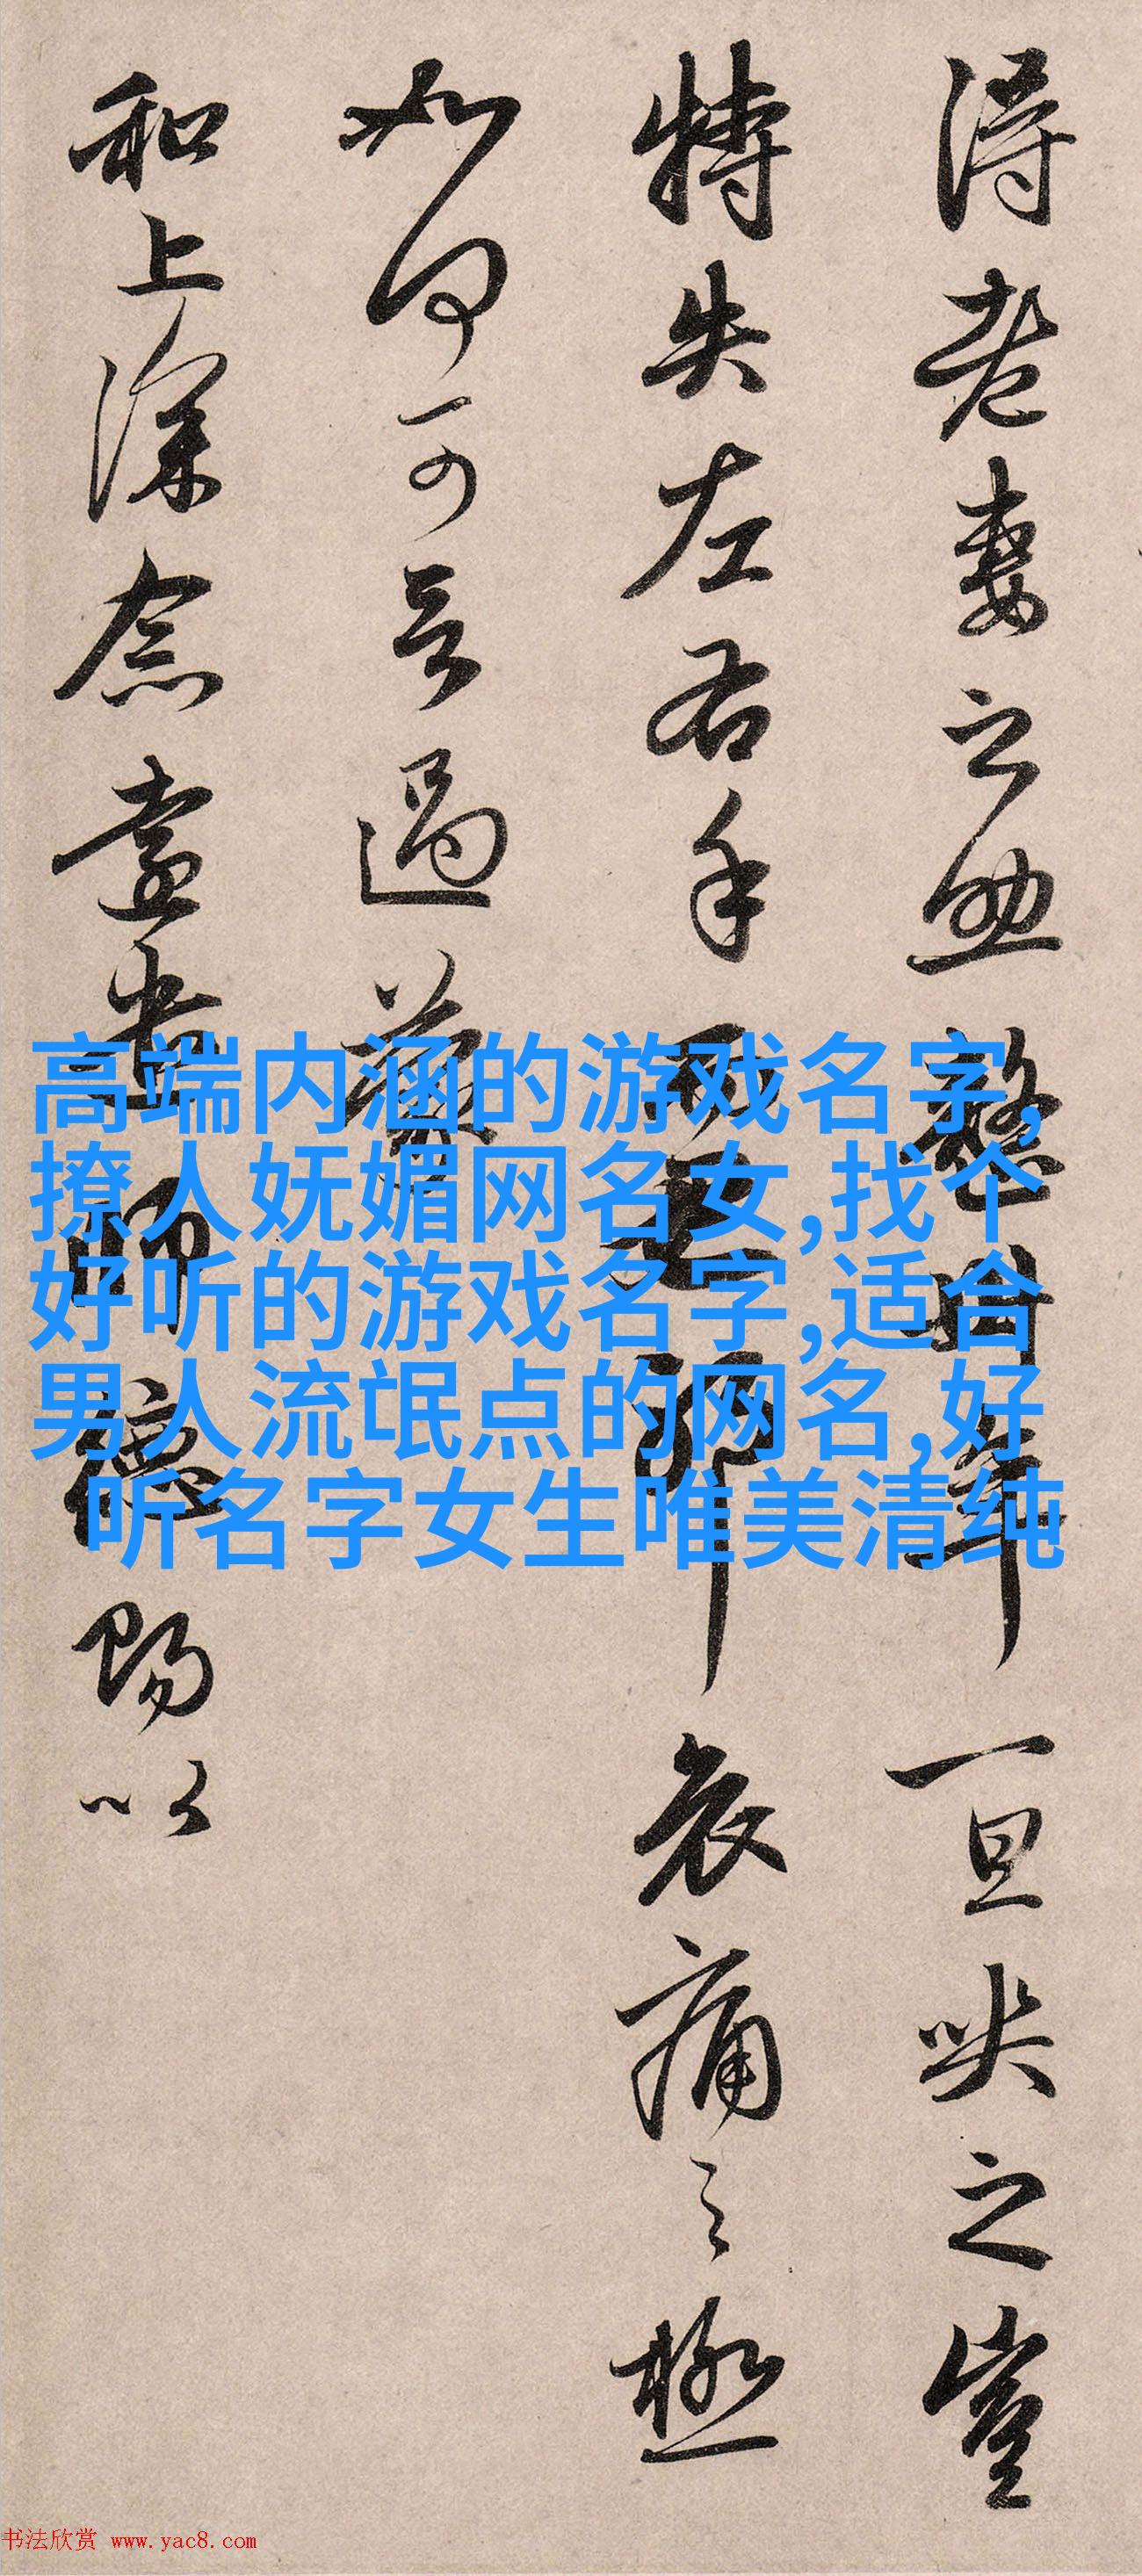 得老妻之助整卅年一旦哭之豈
特失左右手而已耶哀痛之極
如何可言過蒙
和上深念師德賜以
高端内涵的游戏名字,
撩人妩媚网名女,找个
好听的游戏名字,适合
男人流氓点的网名,好
听名字女生唯美清纯
书法欣赏 www.yac8.com